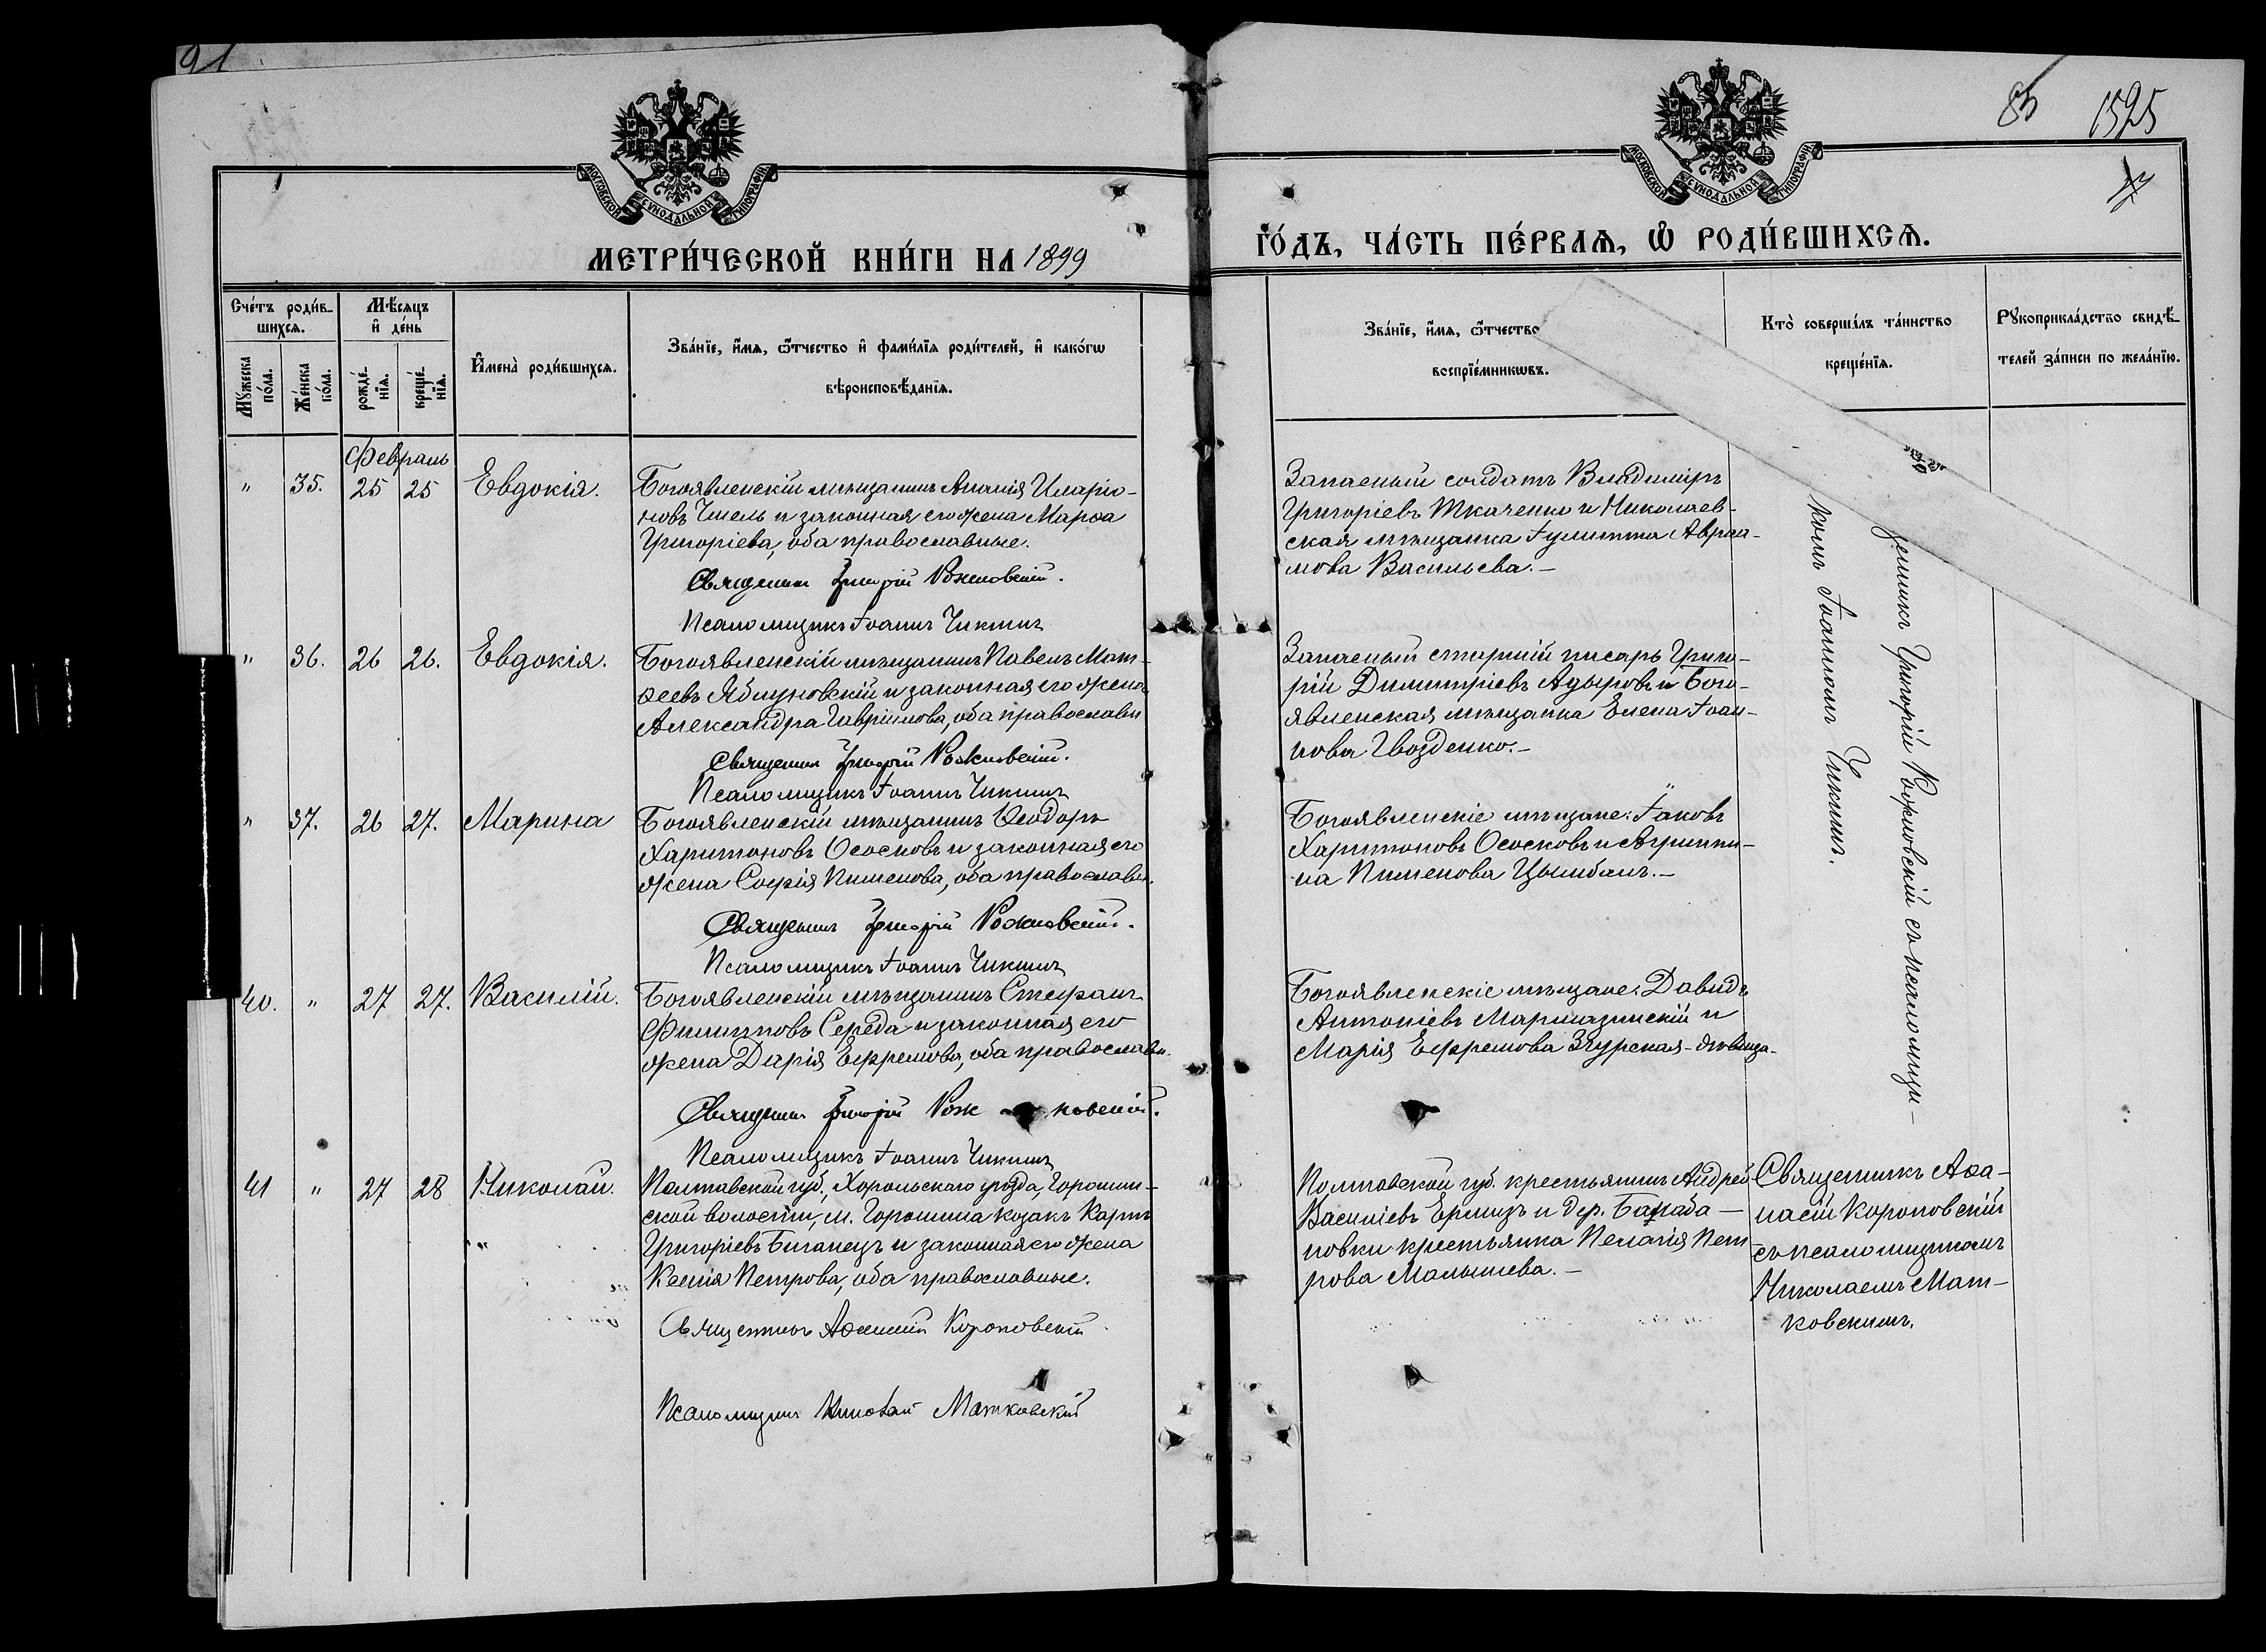 91
85 1525
МОСКОВСКОЙ СѴНОДАЛЬНОЙ ТИПОГРАФІИ
МОСКОВСКОЙ СѴНОДАЛЬНОЙ ТИПОГРАФІИ
МЕТРИ́ЧЕСКОЙ КНИ́ГИ НА 1899
ГО́ДЪ, ЧА́СТЬ ПЕ́РВАѦ, Ѽ РОДИ́ВШИХСѦ.
Сче́тъ роди́в-
шихсѧ.
Мꙋ́жеска
по́ла.
Же́нска
по́ла.
Мѣ́сѧцъ
и҆ де́нь
рожде́-
нїѧ.
креще́-
нїѧ.
И҆мена̀ роди́вшихсѧ.
Зва́нїе, и҆́мѧ, ѻ҆́тчество и҆ фами́лїѧ роди́телей, и҆ како́гѡ
вѣроисповѣ́данїѧ.
Зва́нїе, и҆́мѧ, ѻ҆́тчество
воспрїе́мникѡвъ.
Кто̀ соверша́лъ та́инство
креще́нїѧ.
Рꙋкоприкла́дство свидѣ́-
телей за́писи по жела́нїю.
Февраль
" 35. 25 25 Евдокія.
Богоявленскій мѣщанинъ Ананія Иларіо-
новъ Чмель и законная его жена Марѳа
Григоріева, оба православные.
Священникъ Григорій Рожновскій.
Псаломщикъ Іоаннъ Чикинъ
Запасный солдатъ Владиміръ
Григоріевъ Ткаченко и Николаев-
ская мѣщанка Іулитта Авраа-
мова Васильева.-
" 36. 26 26. Евдокія.
Богоявленскій мѣщанинъ Павелъ Мат-
ѳеевъ Яблуновскій и законная его жена
Александра Гавріилова, оба православн
Священникъ Григорій Рожновскій.
Псаломщикъ Іоаннъ Чикинъ
Запасный старшій писарь Григо-
рій Димитріевъ Адыровъ и Бого-
явленская мѣщанка Елена Іоан-
нова Гвозденко.-
" 37. 26 27. Марина
Богоявленскій мѣщанинъ Ѳеодоръ
Харитоновъ Ососковъ и законная его
жена Софія Пименова, оба православн.
Священникъ Григорій Рожновскій.
Псаломщикъ Іоаннъ Чикинъ
Богоявленскіе мѣщане: Іаковъ
Харитоновъ Ососковъ и Агриппи-
на Пименова Цымбалъ.-
40. " 27 27. Василій.
Богоявленскій мѣщанинъ Стефанъ
Филипповъ Середа и законная его
жена Дарія Ефремова, оба православн.
Священникъ Григорій Рож новскій.
Псаломщикъ Іоаннъ Чикинъ
Богоявленскіе мѣщане: Давидъ
Антоніевъ и
Марія Ефремова Згурская-дѣвица-
щенникъ Григорій Рожновскій съ псаломщи-
комъ Іоанномъ Чикинымъ.
41 " 27 28 Николай.
Полтавской губ., Хорольскаго уѣзда, Горошин-
ской волости, м. Горошина козакъ Карпъ
Григоріевъ Биганецъ и законная его жена
Ксенія Петрова, оба православные.
Священникъ Аѳанасій Короповскій
Псаломщикъ Николай Матковскій
Полтавской губ. крестьянинъ Андрей
Василіевъ и дер.
новки крестьянка Пелагія Пет-
рова Малышева.-
Священникъ Аѳа-
насій Короповскій
съ псаломщикомъ
Николаемъ Мат-
ковскимъ.